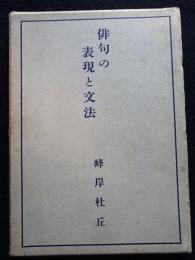 俳句の
表現と文法
峰岸杜丘